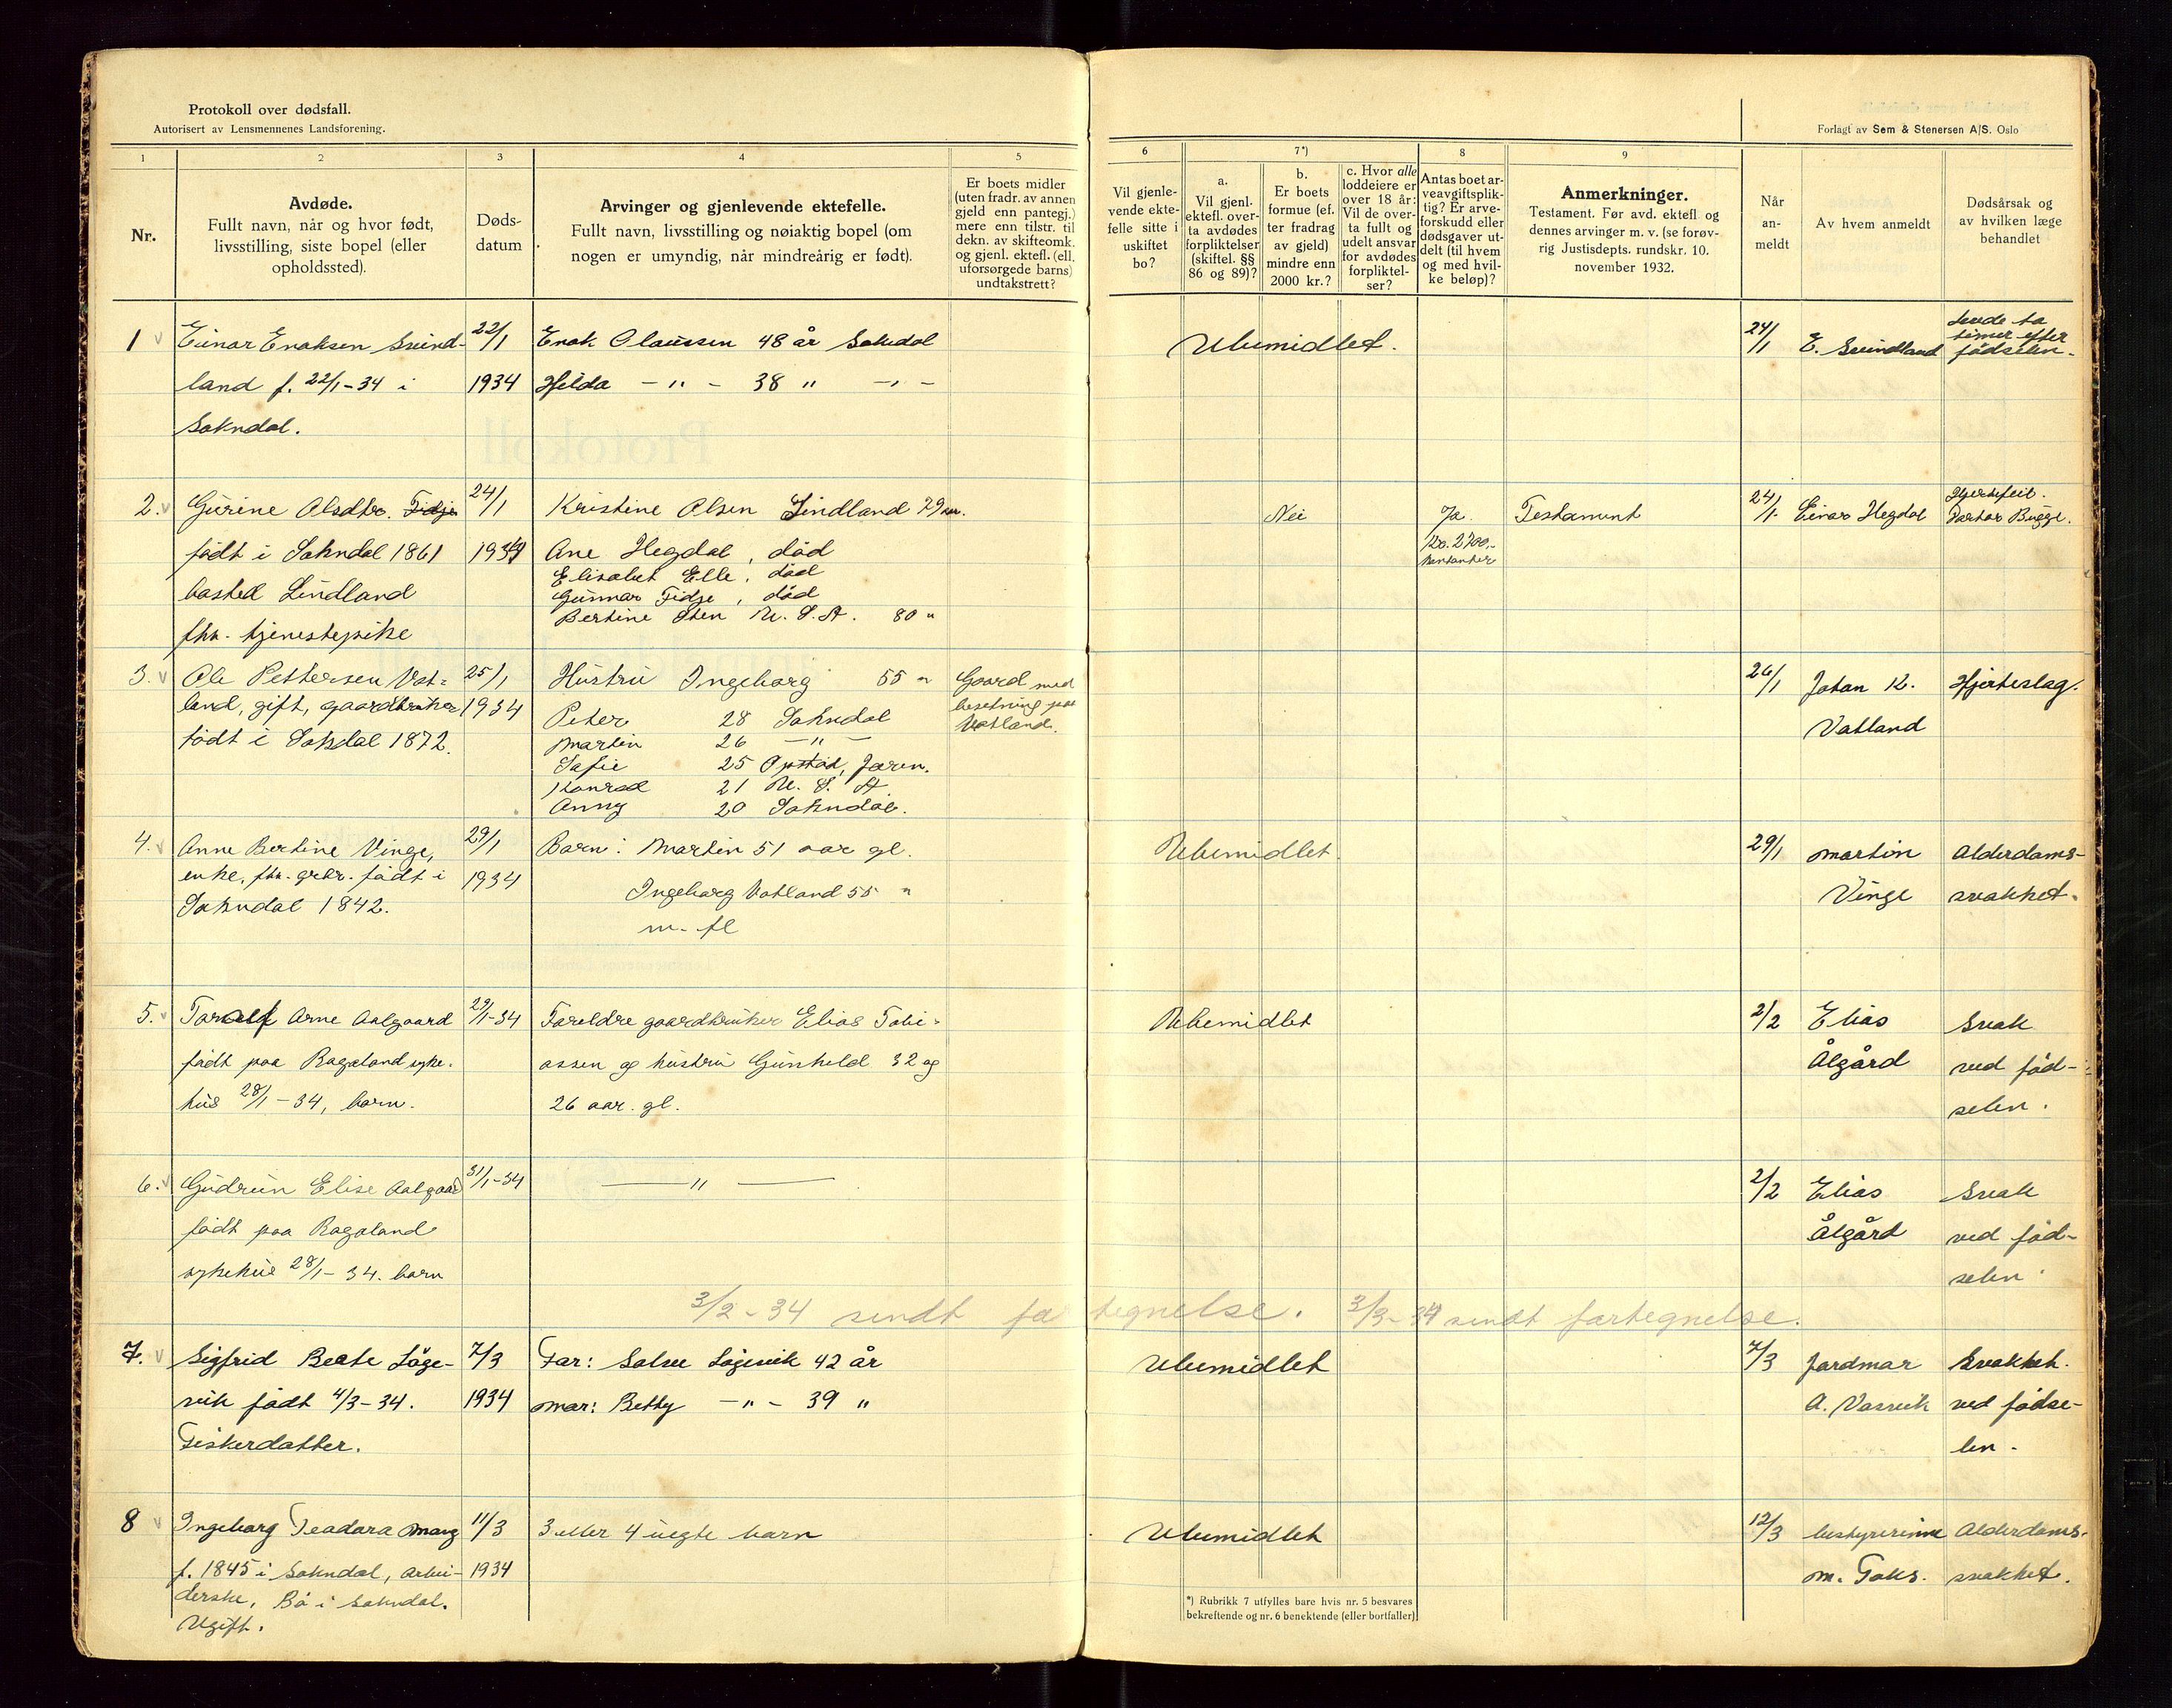 Protokoll over dødsfall.
Autorisert av Lensmennenes Landsforening.
Forlagt av Sem & Stenersen A/S. Oslo
1
2
3
4
5
6
7*)
8
9
Nr.
Avdøde.
Fullt navn, når og hvor født,
livsstilling, siste bopel (eller
opholdssted).
Døds-
datum
Arvinger og gjenlevende ektefelle.
Fullt navn, livsstilling og nøiaktig bopel (om
nogen er umyndig, når mindreårig er født).
Er boets midler
(uten fradr. av annen
gjeld enn pantegj.)
mere enn tilstr. til
dekn. av skifteomk.
og gjenl. ektefl. (ell.
uforsørgede barns)
undtakstrett?
Vil gjenle-
vende ekte-
felle sitte i
uskiftet
bo?
a.
Vil gjenl.
ektefl. over-
ta avdødes
forpliktelser
(skiftel. §§
86 og 89)?
b.
Er boets
formue (ef.
ter fradrag
av gjeld)
mindre enn
2000 kr.?
c. Hvor alle
loddeiere er
over 18 år:
Vil de over-
ta fullt og
udelt ansvar
for avdødes
forpliktel-
ser?
Antas boet ar-
veavgiftsplik-
tig? Er arve-
forskudd eller
dødsgaver ut-
delt (til hvem
og med hvil-
ke beløp)?
Anmerkninger.
Testament. Før avd. ektefl og
dennes arvinger m. v. (se forøv-
rig Justisdepts. rundskr. 10.
november 1932.
Når
an-
meldt
Av hvem anmeldt
Dødsårsak og
av hvilken læge
behandlet
1
Einar Enoksen Svind-
land f. 22/1-34 i
Sokndal.
22/1
1934
Enok Olaussen 48 år Sokndal
Hilda -"- 38 " -"-
Ubemidlet.
24/1
E. Svindland
levde to
timer efter
fødselen.
2.
Gurine Olsdtr. Fidje
født i Sokndal 1861
bosted Lindland
fhv. tjenestepike
24/1
1934
Kristine Olsen Lindland 79 aar.
Ane Hegdal, død
Elisabet Elle, død
Gunnar Fidje, død
Bertine Sten U.S.A. 80 "
Nei
Ja.
Kr. 2700,-
kontanter
Testament
24/1
Einar Hegdal
Hjertefeil.
Doktor Bugge.
3.
Ole Pettersen Vat-
land, gift, gaardbruker
født i Sokndal 1872.
25/1
1934
Hustru Ingeborg 55 "
Peter 28 Sokndal
Martin 26 -"-
Sofie 25 Opstad, Jæren.
Konrad 21 U. S. A
Anny 20 Sokndal.
Gaard med
besetning paa
Vatland.
26/1
Johan K.
Vatland
Hjerteslag.
4.
Anne Bertine Vinge,
enke, fhv. grbr. født i
Sokndal 1842.
29/1
1934
Barn: Martin 51 aar gl.
Ingeborg Vatland 55 "
m. fl
Ubemidlet.
29/1
Martin
Vinge
Alderdoms-
svakhet.
5.
Toralf Arne Aalgaard
født paa Rogaland syke-
hus 28/1-34, barn.
29/1-34
Foreldre gaardbruker Elias Tobi-
assen og hustru Gunhild 32 og
26 aar. gl.
Ubemidlet
2/2
Elias
Ålgård
Svak
ved fød-
selen.
6.
Gudrun Elise Aalgaard
født paa Rogaland
sykehus 28/1-34. barn
31/1-34
— " —
2/2
Elias
Ålgård
Svak
ved fød-
selen.
3/2-34 sendt fortegnelse. 3/3-34 sendt fortegnelse.
7.
Sigfrid Beate Løge-
vik født 4/3-34.
Fiskerdatter.
7/3
1934
Far: Salve Løgevik 42 år
Mor: Betty -"- 39 "
Ubemidlet
7/3
Jardmar
A. Vasvik
Svakhet.
ved fødse-
len.
8
Ingeborg Teodora Mong
f. 1845 i Sokndal, arbei-
derske, Bø i Sokndal.
Ugift.
11/3
1934
3 eller 4 uegte barn
Ubemidlet
12/3
bestyrerinne
M. Foks.
Alderdoms-
svakhet.
*) Rubrikk 7 utfylles bare hvis nr. 5 besvares
bekreftende og nr. 6 benektende (eller bortfaller)